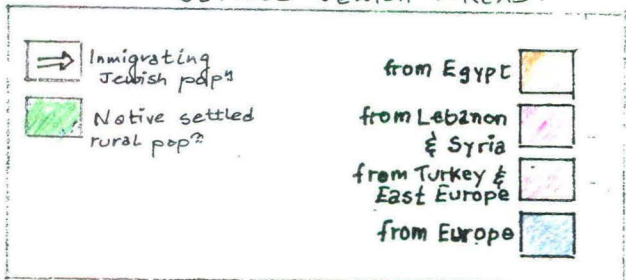 JEWISH
Inmigrating
Jewish popⁿ
Native settled
rural popⁿ
from Egypt
from Lebanon
& Syria
from Turkey &
East Europe
from Europe